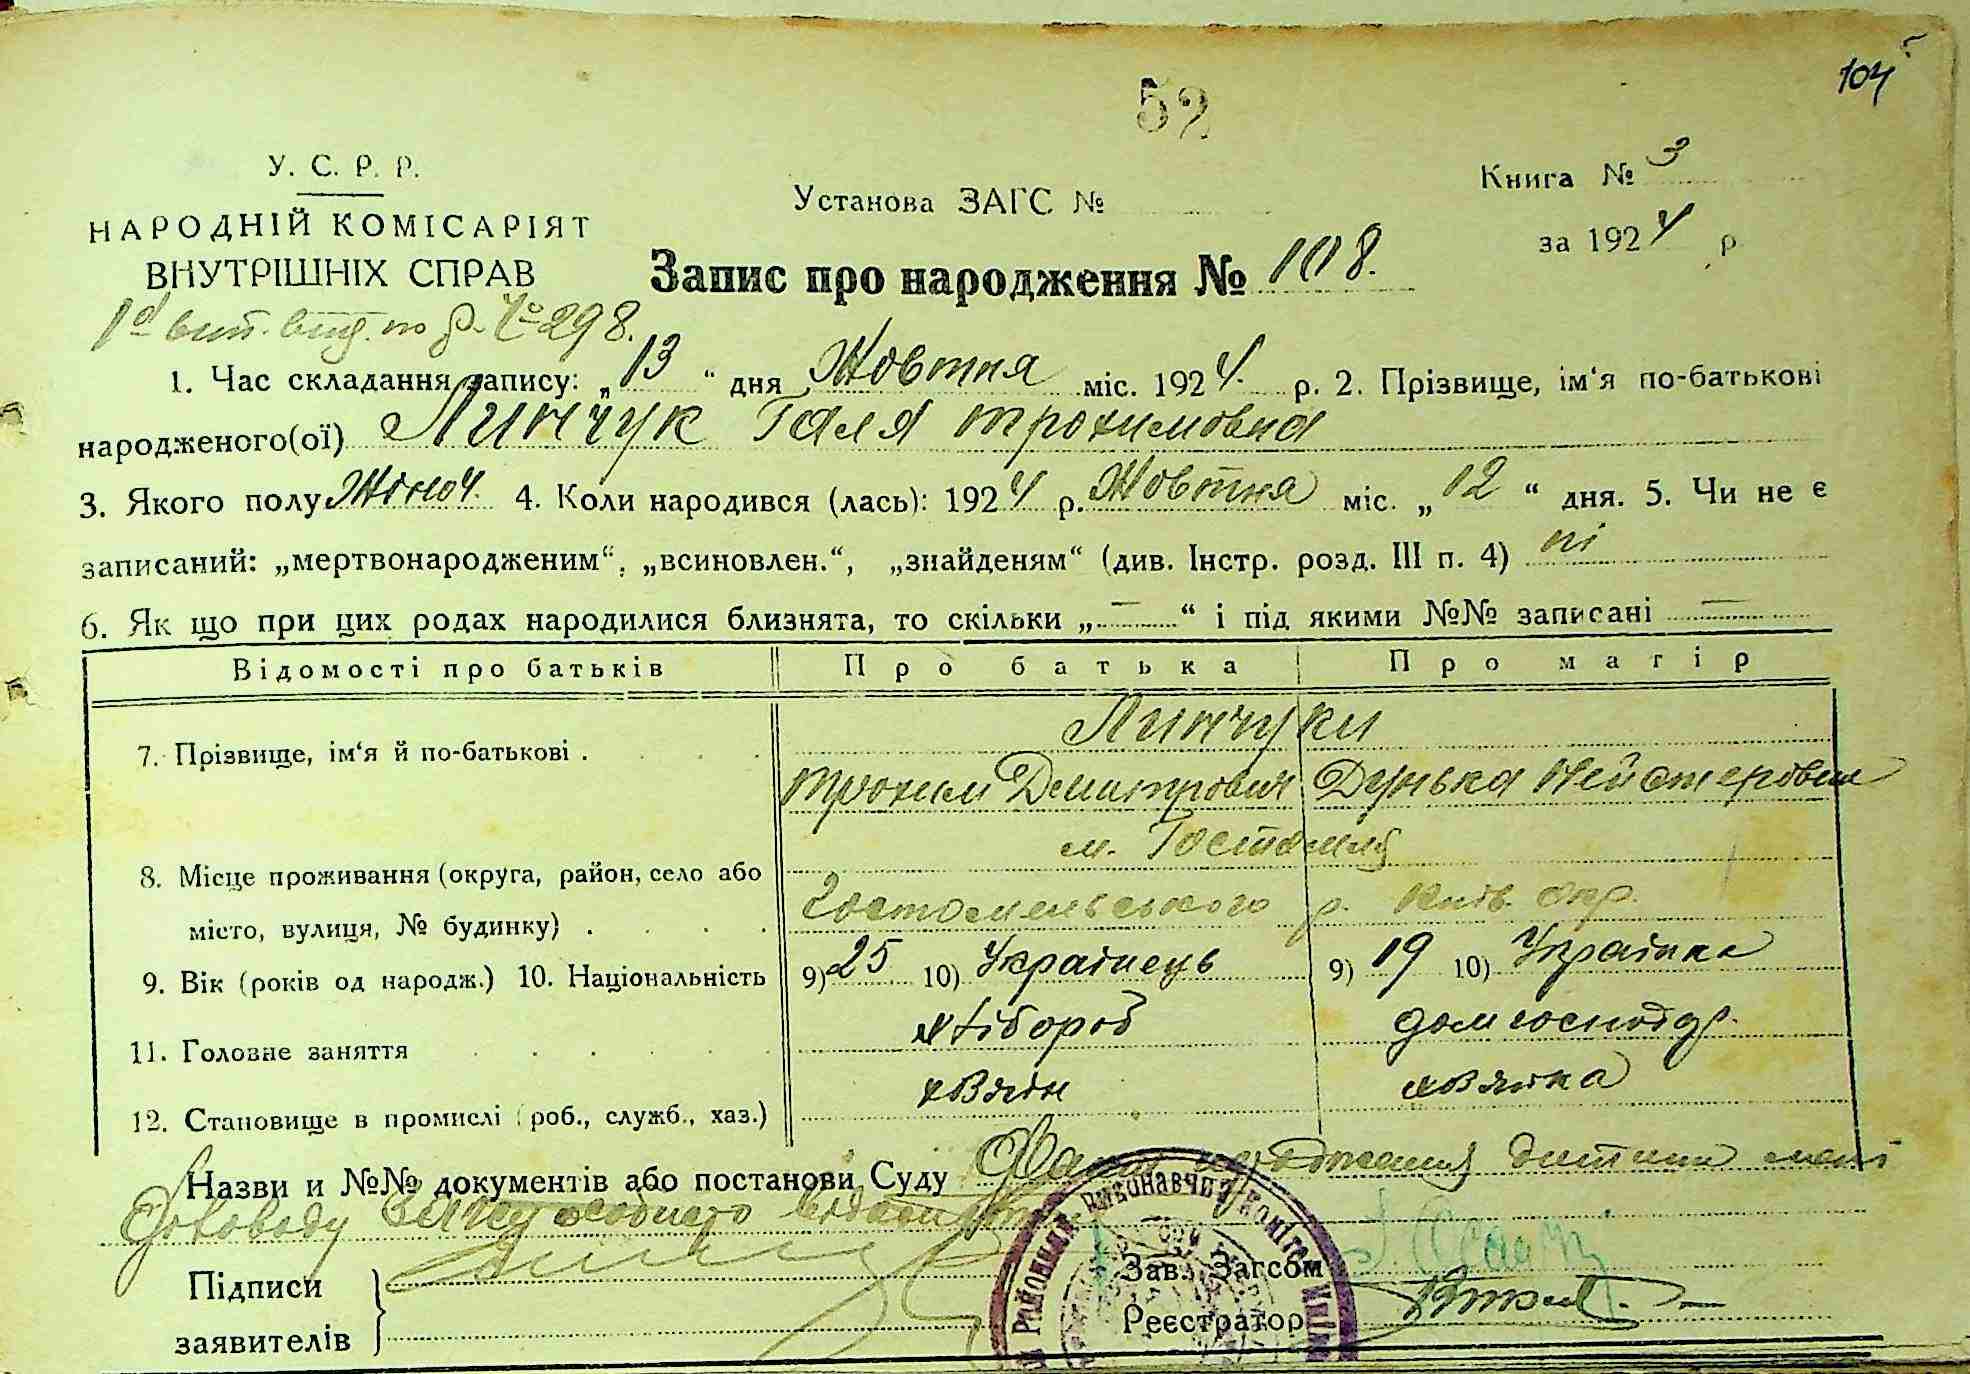 104
52
У. С. Р. Р.
НАРОДНІЙ КОМІСАРІЯТ
ВНУТРІШНІХ СПРАВ
Установа ЗАГС №
Книга № 3
за 1924 р
Запис про народження № 108.
№ 298.
1. Час складання запису: „13“ дня Жовтня міс. 1924. р. 2. Прізвище, ім‘я по-батькові
народженого(ої) Линчук Галя Трохимовна
3. Якого полу Жіноч. 4. Коли народився (лась): 1924 р. Жовтня міс. „12“ дня. 5. Чи не є
записаний: „мертвонародженим“, „всиновлен.“, „знайденям“ (див. Інстр. розд. III п. 4) ні
6. Як що при цих родах народилися близнята, то скільки „—“ і під якими №№ записані —
Відомості про батьків Про батька Про матір
Линчуки
7. Прізвище, ім‘я й по-батькові . Трохим Дмитрович Дунька Нейстеровна
м. Гостомля
8. Місце проживання (округа, район, село або
місто, вулиця, № будинку) . Гостомельського р. Київ. окр.
9. Вік (років од народж.) 10. Національність 9) 25 10) Українець 9) 19 10) Українка
11. Головне заняття хлібороб дом господар.
12. Становище в промислі (роб., служб., хаз.) хазяїн хазяйка
Назви и №№ документів або постанови Суду Факт народження дитини мені
Підписи
заявителів
Зав. Загсом
Реєстратор